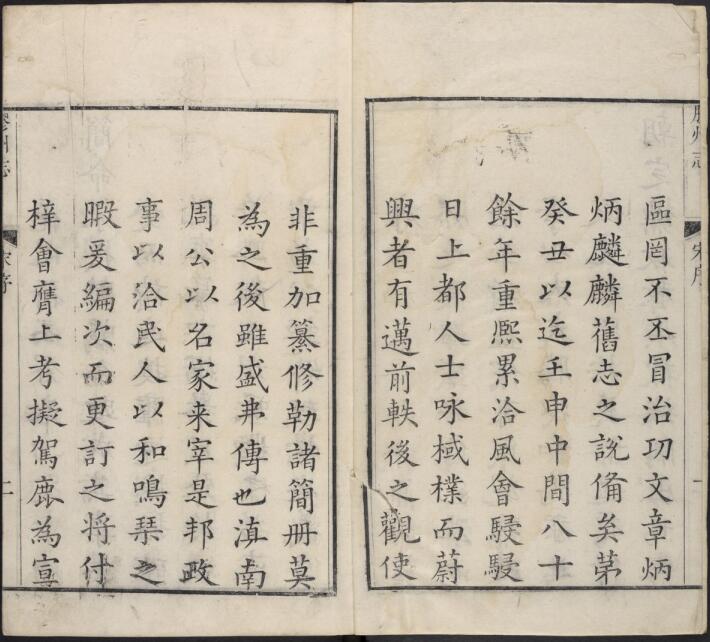 區罔不丕冒治功文章炳
炳麟麟舊志之說備矣苐
癸丑以迄壬申中間八十
餘年重熈累洽風會駸駸
日上都人士咏棫樸而蔚
興者有邁前軼後之觀使
非重加纂修勒諸簡册莫
為之後雖盛弗傳也滇南
周公以名家来宰是邦政
事以洽民人以和鳴琴之
暇爰編次而更訂之将付
梓會膺上考擬駕鹿為宣
州志
宋序
一
州志
宋序
二